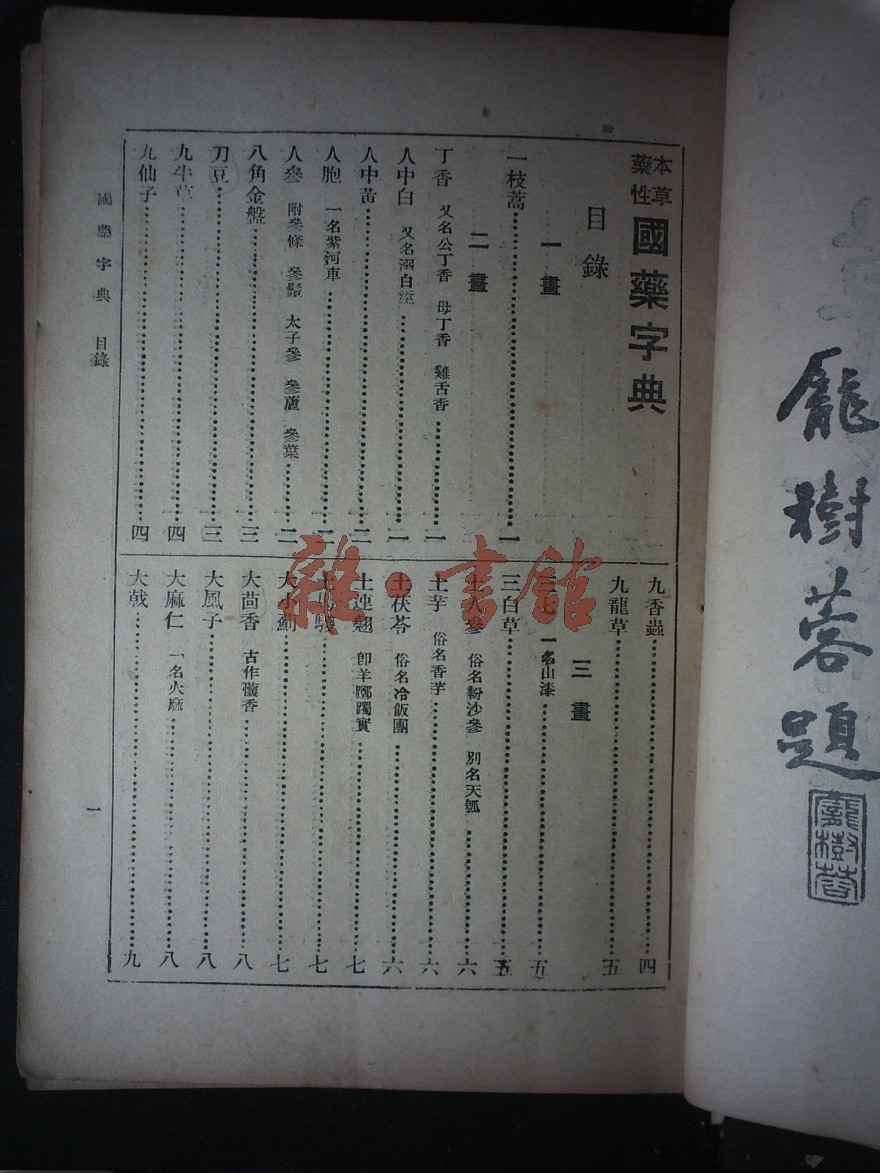 龐樹蓉題
龐樹蓉
本草藥性國藥字典
目錄
一畫
一枝蒿 一
二畫
丁香 又名公丁香 母丁香 雞舌香 一
人中白 又名溺白垽 一
人中黃 二
人胞 一名紫河車 二
人參 附參條 參鬚 太子參 參蘆 參葉 二
八角金盤 三
刀豆 三
九牛草 四
九仙子 四
九香蟲 四
九龍草 五
三畫
三七 一名山漆 五
三白草 五
土人參 俗名粉沙參 別名天瓠 六
土芋 俗名香芋 六
土茯苓 俗名冷飯團 六
土連翹 卽羊躑躅實 七
七
大小薊 七
大茴香 古作蘹香 八
大風子 八
大麻仁 一名火麻 八
大戟 九
國藥字典 目錄
一
雜·書館